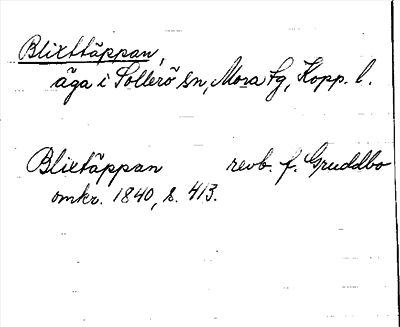 Blixttäppan,
äga i Sollerö sn, Mora tg, Kopp. l.
Blixtäppan revb. f. Gruddbo
omkr. 1840, s. 413.